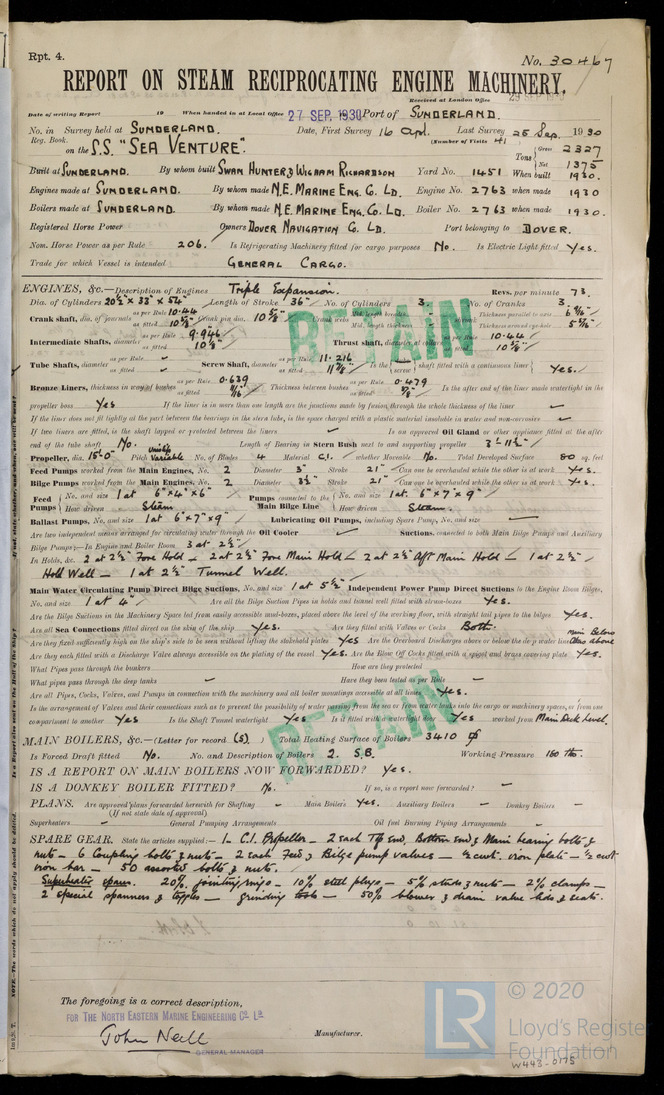 Rpt. 4.
No. 30467
REPORT ON STEAM RECIPROCATING ENGINE MACHINERY.
Received at London Office
Date of writing Report 19 When handed in at Local Office 27 SEP. 1930 Port of SUNDERLAND.
No. in Survey held at SUNDERLAND. Date, First Survey 16 Apl. Last Survey 25 Sep. 1930
Reg. Book. (Number of Visits 41)
on the S.S. "SEA VENTURE". Tons Gross 2327
Net 1375
Built at SUNDERLAND. By whom built SWAN HUNTER & WIGHAM RICHARDSON Yard No. 1451 When built 1930.
Engines made at SUNDERLAND. By whom made N.E. MARINE ENG. Co. LD. Engine No. 2763 when made 1930
Boilers made at SUNDERLAND. By whom made N.E. MARINE ENG. Co. LD. Boiler No. 2763 when made 1930.
Registered Horse Power Owners DOVER NAVIGATION Co. LD. Port belonging to DOVER.
Nom. Horse Power as per Rule 206. Is Refrigerating Machinery fitted for cargo purposes No. Is Electric Light fitted Yes.
Trade for which Vessel is intended GENERAL CARGO.
ENGINES, &c.—Description of Engines Triple Expansion. Revs. per minute 73.
Dia. of Cylinders 20½" x 33" x 54" Length of Stroke 36" No. of Cylinders 3 No. of Cranks 3.
Crank shaft, dia. of journals as per Rule 10.44 as fitted 10⅝" Crank pin dia. 10⅝" Crank webs Mid. length breadth Mid. length thickness Thickness parallel to axis 6⅝" Thickness around eye-hole 5⅝"
Intermediate Shafts, diameter as per Rule 9.946 as fitted 10⅛" Thrust shaft, diameter at collars as per Rule 10.44 as fitted 10⅝"
RETAIN
Tube Shafts, diameter as per Rule as fitted Screw Shaft, diameter as per Rule 11.216 as fitted 11⅞" Is the screw shaft fitted with a continuous liner Yes.
Bronze Liners, thickness in way of bushes as per Rule 0.639 as fitted 11/16" Thickness between bushes as per Rule 0.479 as fitted ⅝" Is the after end of the liner made watertight in the
propeller boss Yes If the liner is in more than one length are the junctions made by fusion through the whole thickness of the liner
If the liner does not fit tightly at the part between the bearings in the stern tube, is the space charged with a plastic material insoluble in water and non-corrosive
If two liners are fitted, is the shaft lapped or protected between the liners Is an approved Oil Gland or other appliance fitted at the after
end of the tube shaft No. Length of Bearing in Stern Bush next to and supporting propeller 3'-11½"
Propeller, dia. 15'-0" Pitch Variable No. of Blades 4 Material C.I. whether Moveable No. Total Developed Surface 80 sq. feet
Feed Pumps worked from the Main Engines, No. 2 Diameter 3" Stroke 21" Can one be overhauled while the other is at work Yes.
Bilge Pumps worked from the Main Engines, No. 2 Diameter 3½" Stroke 21" Can one be overhauled while the other is at work Yes.
Feed Pumps No. and size 1 at 6" x 4" x 6" How driven Steam Pumps connected to the Main Bilge Line No. and size 1 at. 6" x 7" x 9" How driven Steam.
Ballast Pumps, No. and size 1 at 6" x 7" x 9" Lubricating Oil Pumps, including Spare Pump, No. and size
Are two independent means arranged for circulating water through the Oil Cooler Suctions, connected to both Main Bilge Pumps and Auxiliary
Bilge Pumps;—In Engine and Boiler Room 3 at 2½"
In Holds, &c. 2 at 2½" Fore Hold - 2 at 2½" Fore Main Hold - 2 at 2½" Aft Main Hold - 1 at 2½"
Hold Well - 1 at 2½" Tunnel Well.
Main Water Circulating Pump Direct Bilge Suctions, No. and size 1 at 5½" Independent Power Pump Direct Suctions to the Engine Room Bilges,
No. and size 1 at 4" Are all the Bilge Suction Pipes in holds and tunnel well fitted with strum-boxes Yes.
Are the Bilge Suctions in the Machinery Spaces led from easily accessible mud-boxes, placed above the level of the working floor, with straight tail pipes to the bilges Yes.
Are all Sea Connections fitted direct on the skin of the ship Yes. Are they fitted with Valves or Cocks Both.
Are they fixed sufficiently high on the ship's side to be seen without lifting the stokehold plates Yes Are the Overboard Discharges above or below the deep water line Main Below Others above
Are they each fitted with a Discharge Valve always accessible on the plating of the vessel Yes. Are the Blow Off Cocks fitted with a spigot and brass covering plate Yes.
What Pipes pass through the bunkers How are they protected
What pipes pass through the deep tanks Have they been tested as per Rule
Are all Pipes, Cocks, Valves, and Pumps in connection with the machinery and all boiler mountings accessible at all times Yes.
Is the arrangement of Valves and their connections such as to prevent the possibility of water passing from the sea or from water tanks into the cargo or machinery spaces, or from one
compartment to another Yes Is the Shaft Tunnel watertight Yes Is it fitted with a watertight door Yes worked from Main Deck Level.
RETAIN
MAIN BOILERS, &c.—(Letter for record (S).) Total Heating Surface of Boilers 3410
Is Forced Draft fitted No. No. and Description of Boilers 2. S.B. Working Pressure 160 lbs.
IS A REPORT ON MAIN BOILERS NOW FORWARDED? Yes.
IS A DONKEY BOILER FITTED? No. If so, is a report now forwarded?
PLANS. Are approved plans forwarded herewith for Shafting Main Boilers Yes. Auxiliary Boilers Donkey Boilers
(If not state date of approval)
Superheaters General Pumping Arrangements Oil fuel Burning Piping Arrangements
SPARE GEAR. State the articles supplied:— 1 - C.I. Propeller - 2 each Top end, Bottom end & Main bearing bolts &
nuts - 6 Coupling bolts & nuts - 2 each Feed & Bilge pump valves - ½ cwt. iron plate - ½ cwt
iron bar - 50 assorted bolts & nuts.
Superheater spares. 20% jointing rings - 10% steel plugs - 5% studs & nuts - 2% clamps -
2 special spanners & toggles - grinding tools - 50% blower & drain valve lids & seats.
The foregoing is a correct description,
FOR THE NORTH EASTERN MARINE ENGINEERING Co. Ld.
John Neill Manufacturer.
GENERAL MANAGER
© 2020
LR
Lloyd's Register
Foundation
W443-0175